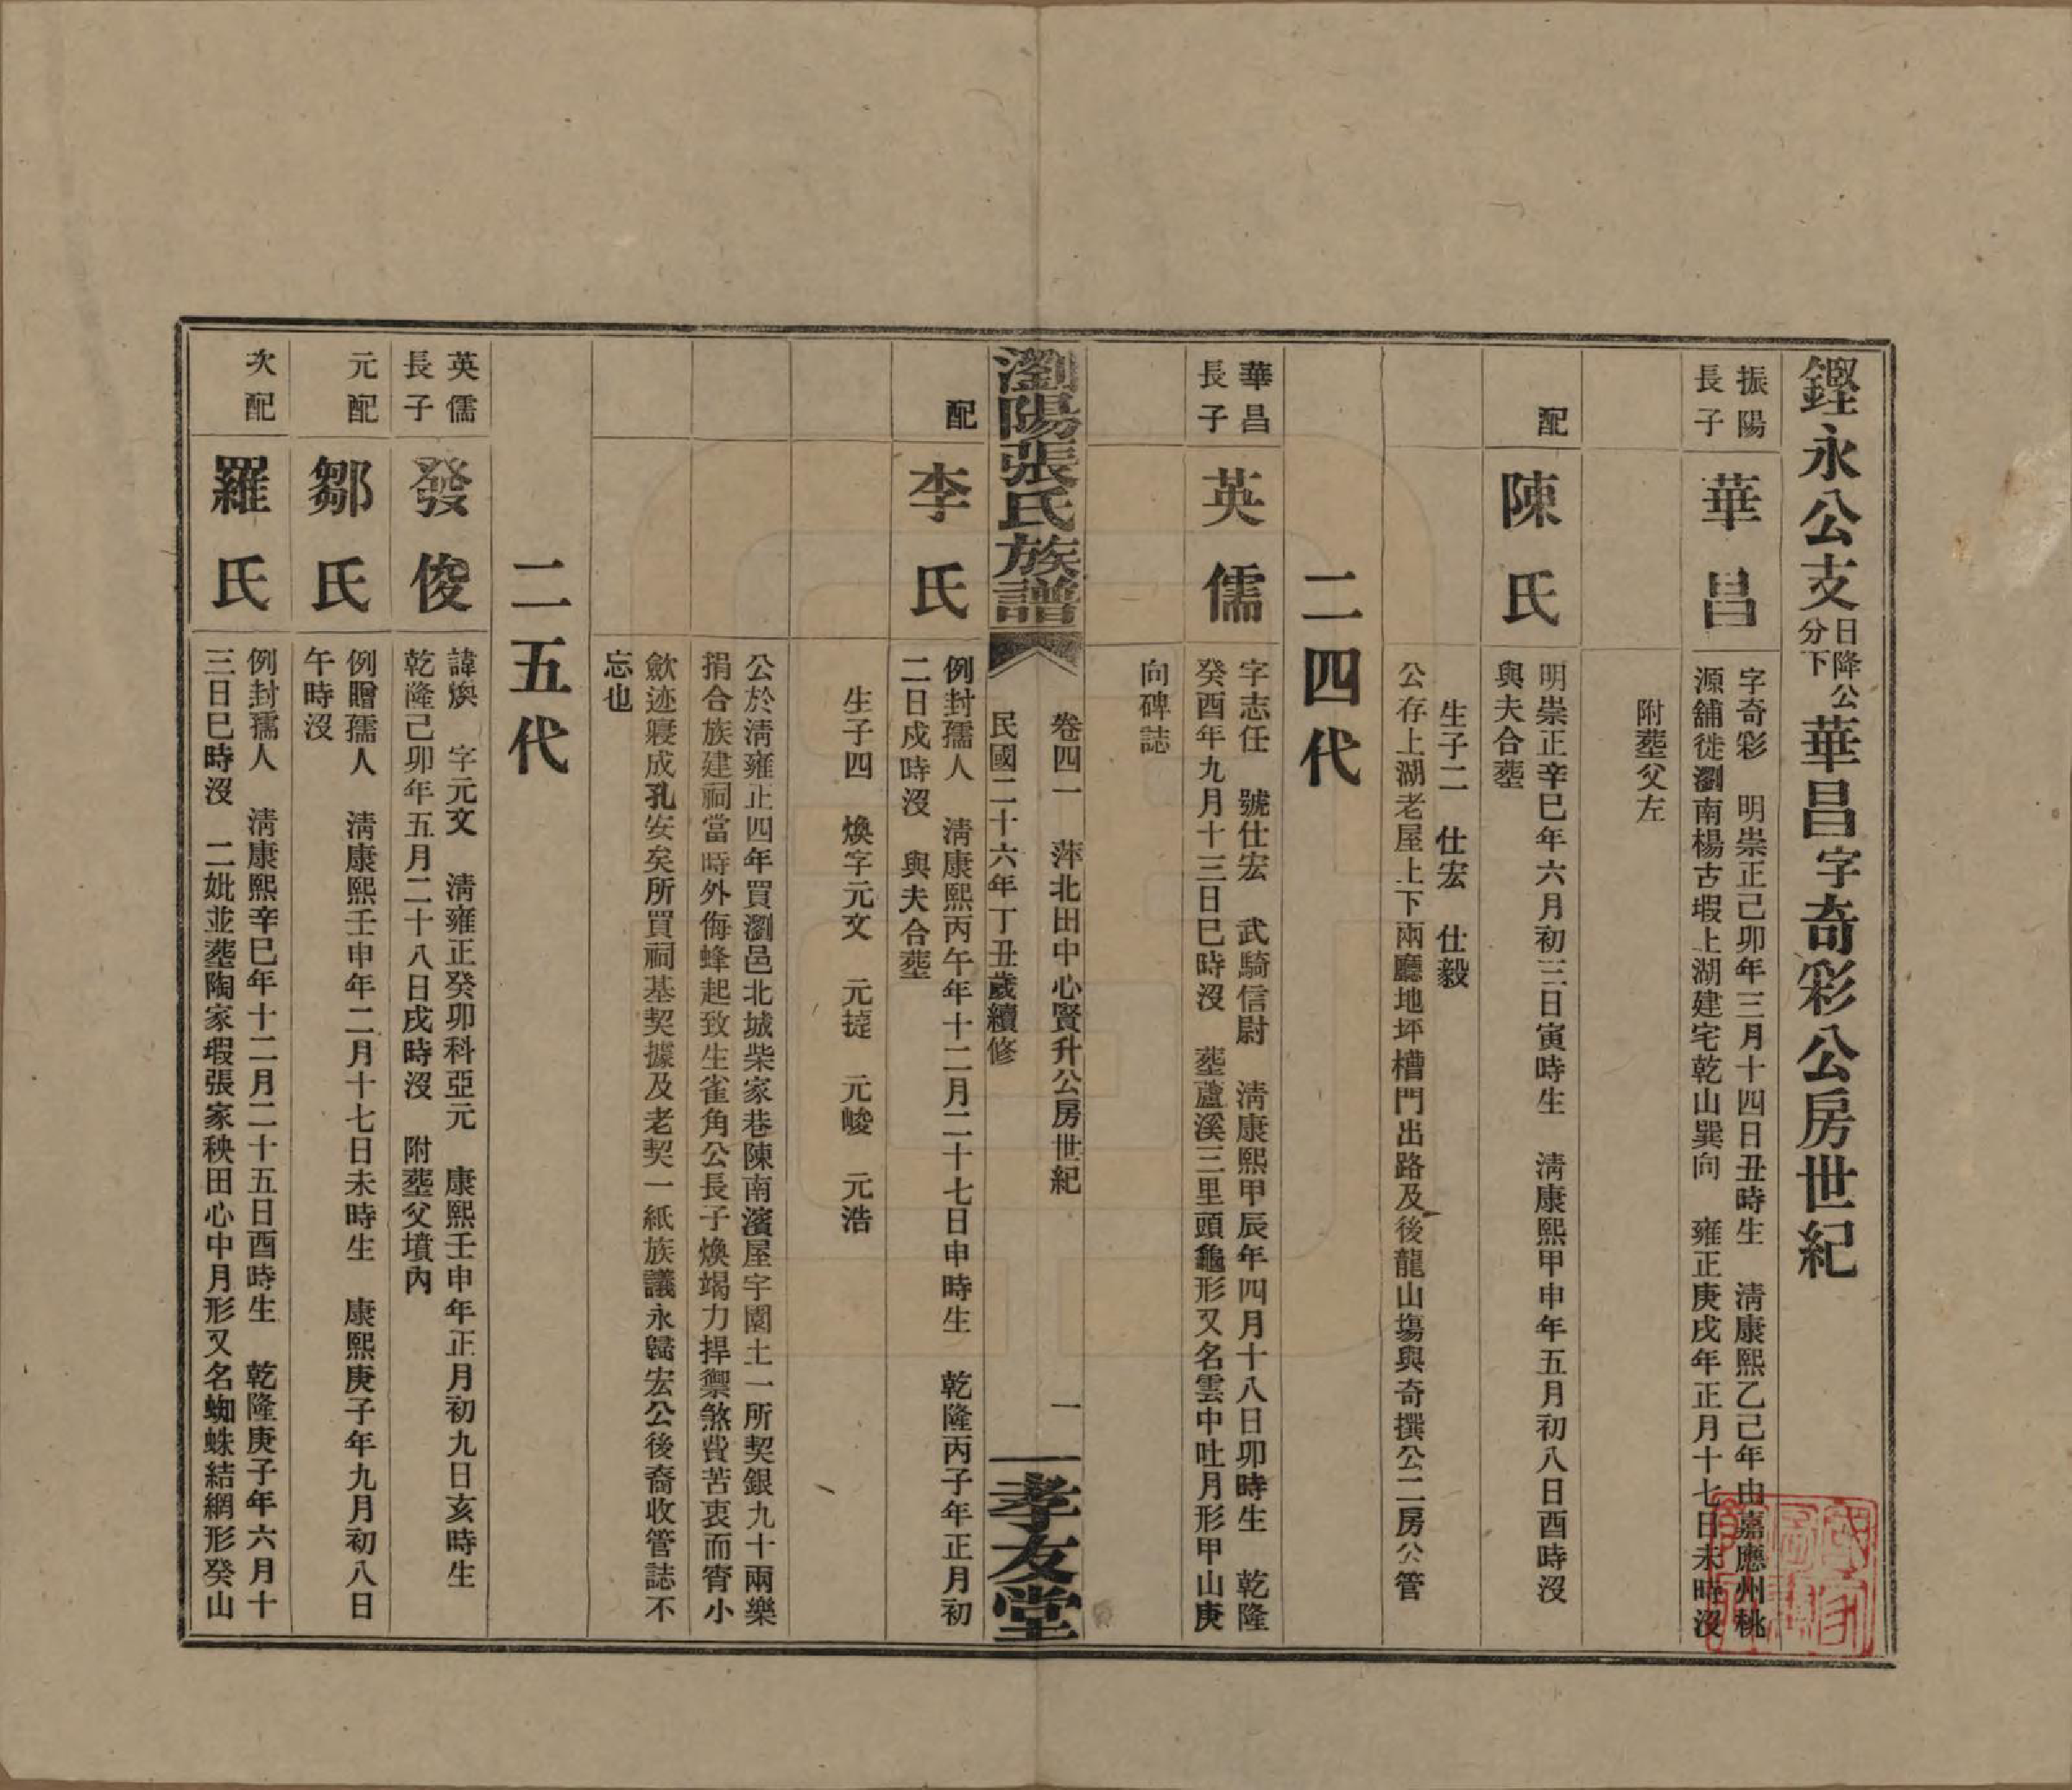 鏗永公支日降公分下華昌字奇彩公房世紀
振陽長子
華昌
字奇彩 明崇正己卯年三月十四日丑時生 淸康熙乙己年由嘉應州桃
源舖徙瀏南楊古瑕上湖建宅乾山巽向 雍正庚戌年正月十七日未時沒
附塟父左
配
陳氏
明崇正辛巳年六月初三日寅時生 淸康熙甲申年五月初八日酉時沒
與夫合塟
生子二 仕宏 仕毅
公存上湖老屋上下兩廳地坪槽門出路及後龍山塲與奇撰公二房公管
二四代
華昌長子
英儒
字志任 號仕宏 武騎信尉 淸康熙甲辰年四月十八日卯時生 乾隆
癸酉年九月十三日巳時沒 塟蘆溪三里頭龜形又名雲中吐月形甲山庚
向碑誌
瀏陽張氏族譜
卷四一 萍北田中心賢升公房世紀 一
民國二十六年丁丑歲續修
孝友堂
配
李氏
例封孺人 淸康熙丙午年十二月二十七日申時生 乾隆丙子年正月初
二日戍時沒 與夫合塟
生子四 煥字元文 元㨗 元峻 元浩
公於淸雍正四年買瀏邑北城柴家巷陳南濱屋宇園土一所契銀九十兩樂
捐合族建祠當時外侮蜂起致生雀角公長子煥竭力捍禦煞費苦衷而宵小
歛迹寢成孔安矣所買祠基契據及老契一紙族議永歸宏公後裔收管誌不
忘也
二五代
英儒長子
發俊
諱煥 字元文 淸雍正癸卯科亞元 康熙壬申年正月初九日亥時生
乾隆己卯年五月二十八日戌時沒 附塟父墳內
元配
鄒氏
例贈孺人 淸康熙壬申年二月十七日未時生 康熙庚子年九月初八日
午時沒
次配
羅氏
例封孺人 淸康熙辛巳年十二月二十五日酉時生 乾隆庚子年六月十
三日巳時沒 二妣並塟陶家瑕張家秧田心中月形又名蜘蛛結網形癸山